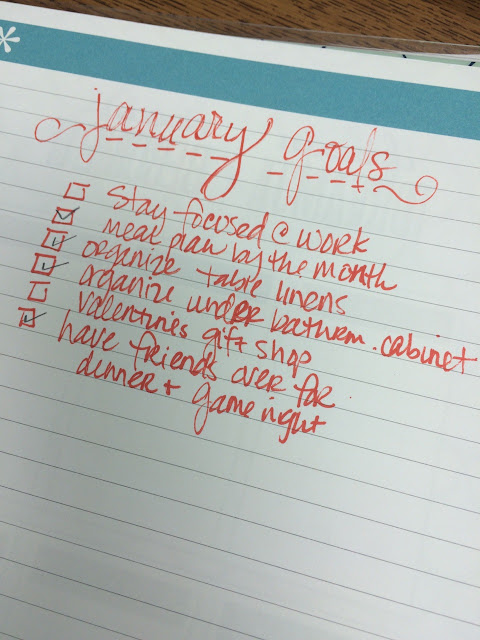 january goals
stay focused @ work
meal plan by the month
organize table linens
organize under bathrm. cabinet
valentines gift shop
have friends over for
dinner + game night